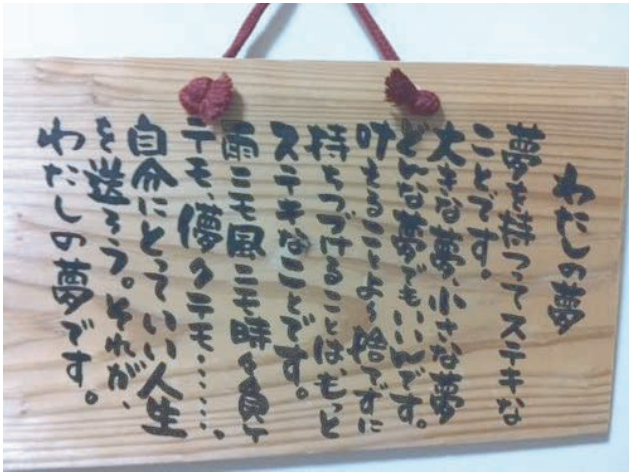 わたしの夢
夢を持つってステキな
ことです。
大きな夢、小さな夢
どんな夢でも、いいんです。
叶えることより捨てずに
持ちつづけることは、もっと
ステキなことです。
雨ニモ風ニモ時々負ケ
テモ、儚クテモ・・・・・・。
自分にとっていい人生
を送ろう。それが、
わたしの夢です。